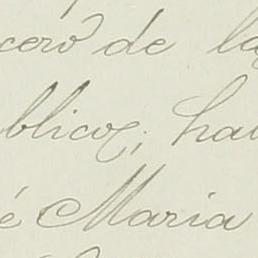 cero de la
blicos; ha
é Maria